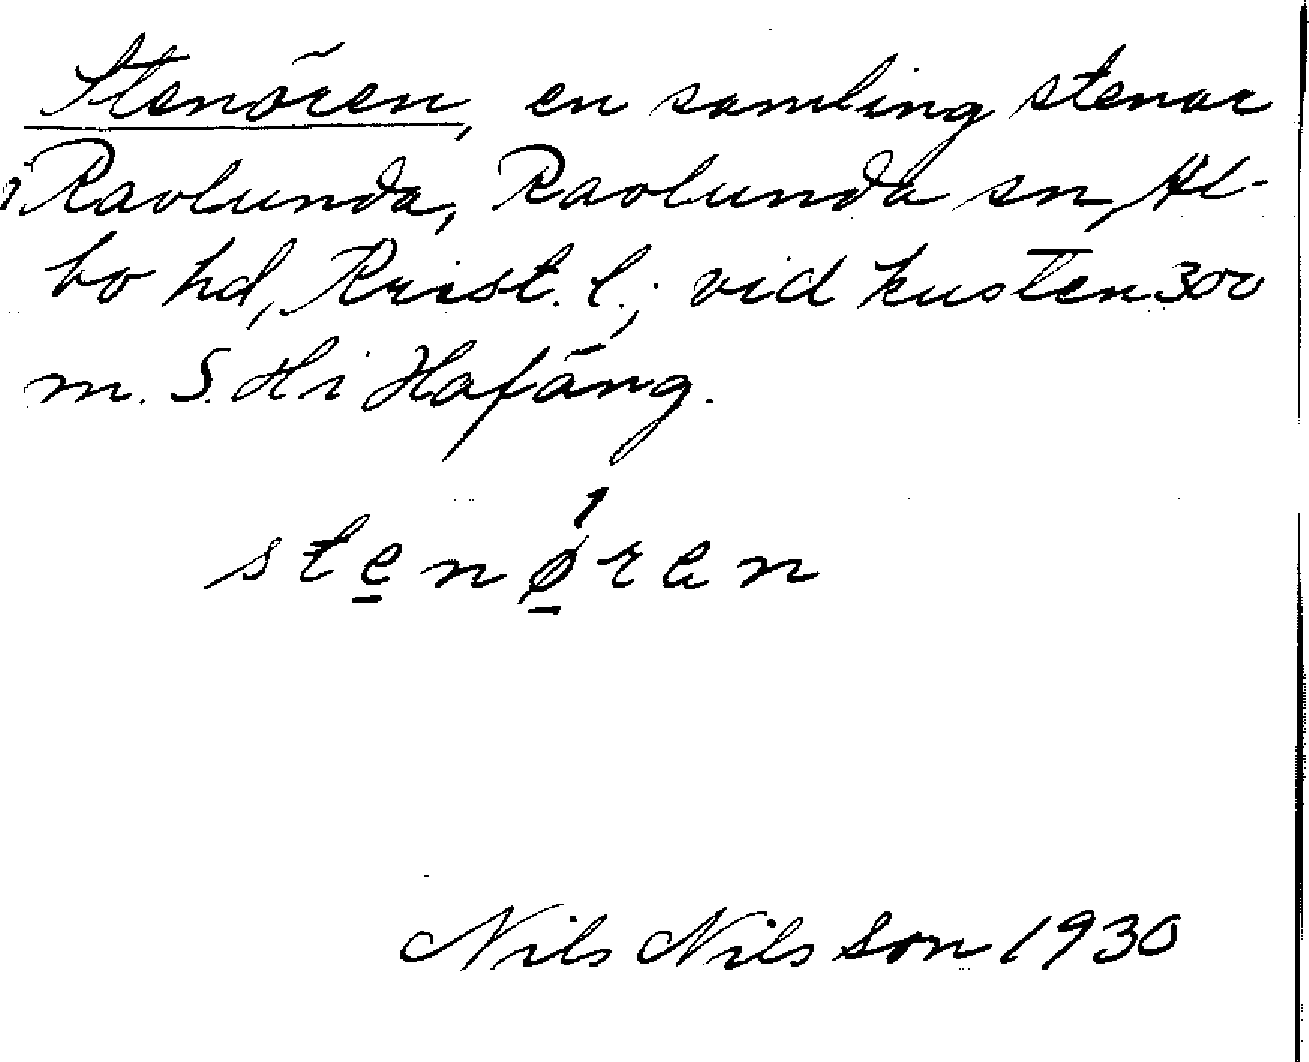 Stenören, en samling stenar
i Ravlunda, Ravlunda sn, Al-
bo hd, Krist. l.; vid kusten 300
m. S. Hi Hafäng.
stenǿren
Nils Nilsson 1930